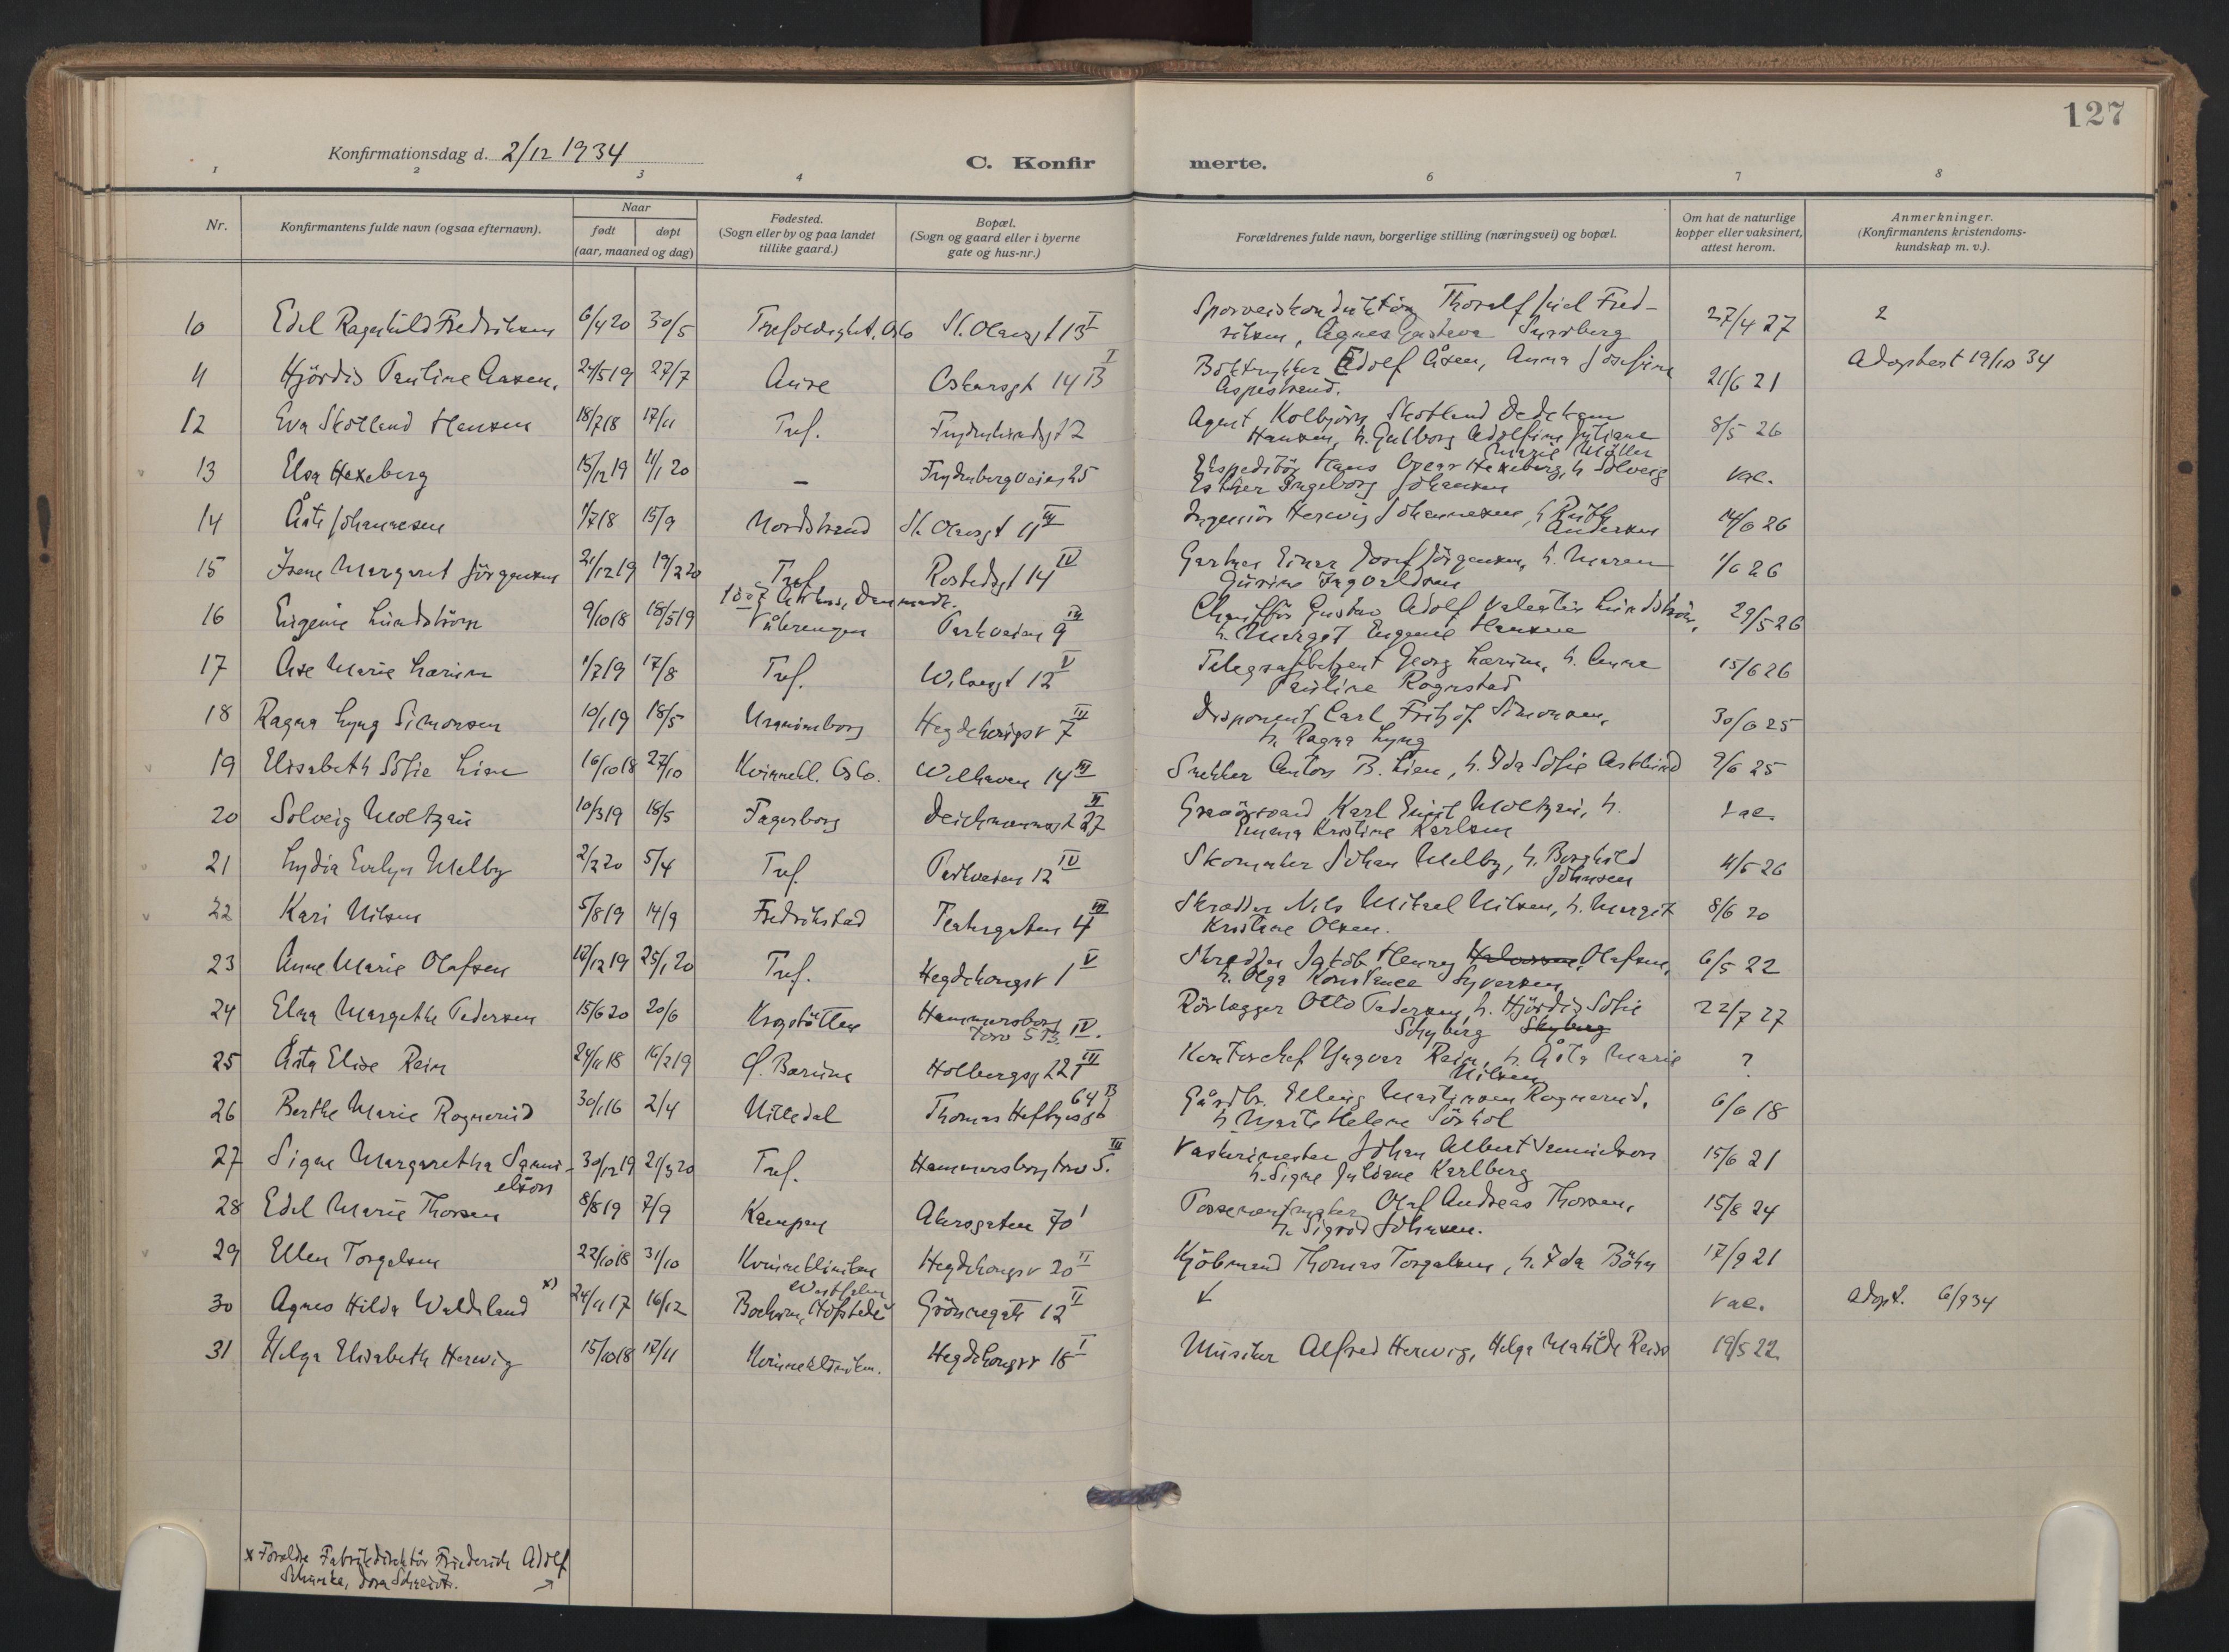 127
Konfirmationsdag d. 2/12 1934
C. Konfirmerte.
1 2 3 4 6 7 8
Nr.
Konfirmantens fulde navn (ogsaa efternavn).
Naar
født
døpt
(aar, maaned og dag)
Fødested.
(Sogn eller by og paa landet
tillike gaard.)
Bopæl.
(Sogn og gaard eller i byerne
gate og hus-nr.)
Forældrenes fulde navn, borgerlige stilling (næringsvei) og bopæl.
Om hat de naturlige
kopper eller vaksinert,
attest herom.
Anmerkninger.
(Konfirmantens kristendoms-
kundskap m. v.).
10 Edel Ragnhild Fredriksen 6/4 20 30/5 Trefoldighet, Oslo St. Olavsgt 13 I Sporveiskonduktør Thoralf Fred-
riksen, Agnes Gustava 27/4 27 2
11 Hjördis Pauline Aasen, 24/5 19 27/7 Aure Oscarsgt 14 B I Böktrykker Edolf Åsen, Anna Josefine
Aspestrand. 21/6 21 Adoptert 19/10 34
12 Eva Skotland Hansen 18/7 18 17/11 Tref. 2 Agent Kolbjörn Skotland Dedekam
Hansen, h. Gulborg Adolfine Juliane
Marie Möller 8/5 26
13 Elsa Hexeberg 15/12 19 11/1 20 – Frydenbergveien 25 Ekspeditör Hans Oscar Hexeberg, h. Solveig
Esther Ingeborg Johansen vac.
14 Åste Johannesen 1/7 18 15/9 Nordstrand St. Olavsgt 11 III Ingeniör Herwig Johannesen, h. Ruth
Andersen 14/6 26
15 Irene Margaret Jörgensen 21/12 19 19/2 20 Tref. Rostedsgt 14 IV Gartner Einar Josef Jörgensen, h. Maren
Gurine Ingvaldsen 1/6 26
16 Eugenie Lundström 9/10 18 18/5 19 Danmark.
Vålerengen Parkveien 9 III Chaufför Gustav Adolf Valentin Lundström,
h. Margot Eugenie Hansen 29/5 26
17 Åse Marie Larsen 1/7 19 17/8 Tref. 12 V Telegrafbetjent Georg Larsen, h. Anna
Pauline Rognstad 15/6 26
18 Ragna Lyng Simonsen 10/1 19 18/5 Uranienborg Hegdehaugsv 7 III Disponent Carl Fritjof Simonsen,
h. Ragna Lyng 30/6 25
19 Elisabeth Sofie Lien 16/10 18 27/10 Kvinnekl. Oslo. Welhaven 14 III Snekker Anton B. Lien, h. Ida Sofie 9/6 25
20 Solveig Moltzau 10/3 19 18/5 Fagerborg Deichmannsgt 27 II Karl Emil Moltzau, h.
Emma Kristine Karlsen vac.
21 Lydia Evelyn Melby 2/2 20 5/4 Tref. Parkveien 12 IV Skomaker Johan Melby, h. Borghild
Johnsen 4/5 26
22 Kari Nilsen 5/8 19 14/9 Fredrikstad Teatergaten 4 III Skredder Nils Mikael Nilsen, h. Margit
Kristine Olsen. 8/6 20
23 Anne Marie Olafsen 12/12 19 25/1 20 Tref. Hegdehaugsv 1 V Skredder Jakob Henry Halvorsen Olafsen,
h. Olga Konstance Syversen 6/5 22
24 Elna Margrethe Pedersen 15/6 20 20/6 Krogstötten Hammersborg
torv 5 B. IV. Rörlegger Otto Pedersen, h. Hjördis Sofie
Schyberg Skyberg 22/7 27
25 Åsta Elise Rein 24/11 18 16/2 19 Ø. Bærum Holbergsg 22 III Kontorchef Yngvar Rein, h. Åsta Marie
Nilsen ?
26 Berthe Marie Rognerud 30/1 16 2/4 Nittedal Thomas Heftyesgt 64 B Gårdbr. Elling Martinsen Rognerud,
h. Marte Helene 6/6 18
27 Signe Margaretha Samu-
elson 30/12 19 21/3 20 Tref. Hammersborg torv 5. III Vaskerimester Johan Albert Samuelson
h. Signe Juliane Karlberg 15/6 21
28 Edel Marie Thorsen 8/8 19 7/9 Kampen Akersgaten 70 I Possementmaker Olaf Andreas Thorsen,
h. Sigrid Johnsen. 15/8 24
29 Ellen Torgalsen 22/10 18 31/10 Kvinneklinikken Hegdehaugsv 20 II Kjöbmand Thomas Torgalsen, h. Ida Böhn 17/9 21
30 Agnes Hilda Waldeland x) 24/11 17 16/12 Westfalen
Bochum, Hofstede Grönnegate 12 II vac. adopt. 6/9 34
31 Helga Elisabeth Herwig 15/10 18 17/11 Kvinneklinikken. Hegdehaugsv 18 I Musiker Alfred Herwig, Helga Matilde 19/5 22
x Foreldre Fabrikdirektör Friederich Adolf
Dora